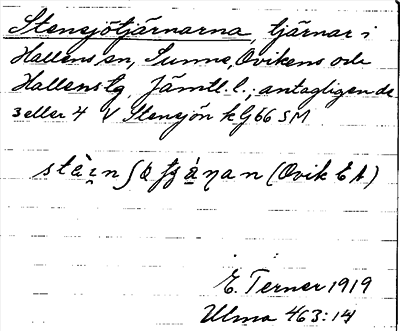 Stensjötjärnarna, tjärnar i
Hallens sn, Sunne, Ovikens och
Hallens tg, Jämtl. l.; antagligen de
3 eller 4 V Stensjön kG66 SM
(Ovik E A)
E. Terner 1919
Ulma 463:14